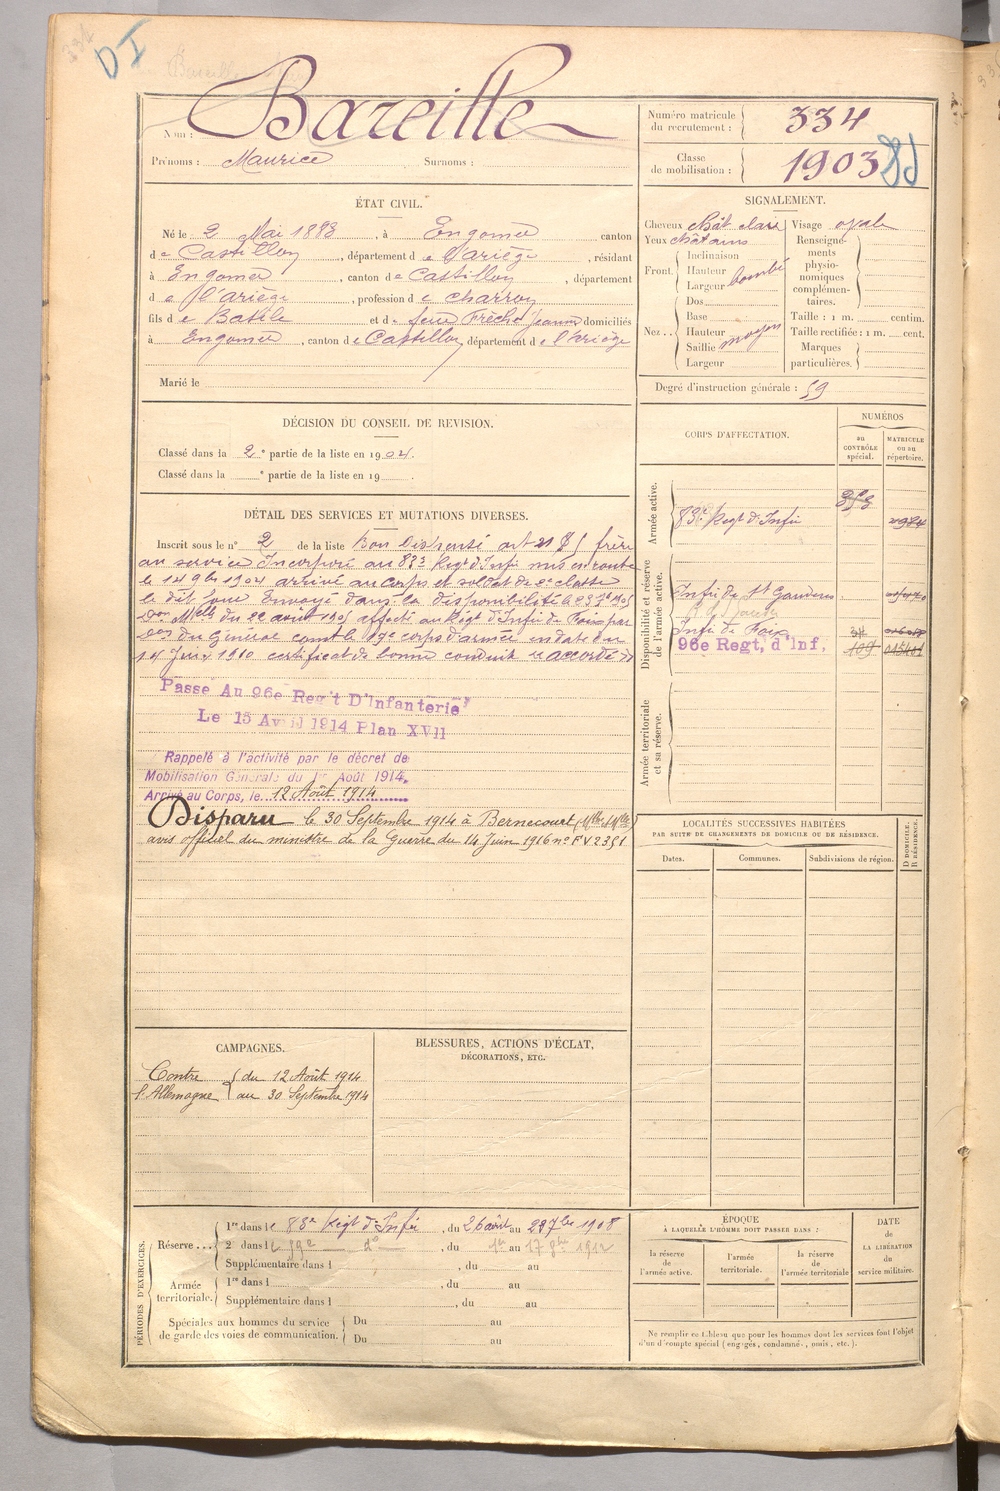 D I
Nom : Bareille
Prénoms : Maurice Surnoms :
Numéro matricule du recrutement : 334
Classe de mobilisation : 1903
ÉTAT CIVIL.
Né le 2 Mai 1883, à Engomer canton
de Castillon, département de l'Ariège, résidant
à Engomer, canton de Castillon, département
de l'Ariège, profession de charron
fils de Basile et de feue Frèche Jeanne domiciliés
à Engomer, canton de Castillon, département de l'Ariège
Marié le
SIGNALEMENT.
Cheveux chât clairs Visage ovale
Yeux châtains
Front. Inclinaison
Hauteur bombé
Largeur
Nez... Dos
Base
Hauteur moyen
Saillie
Largeur
Renseignements physionomiques complémentaires.
Taille : 1 m. centim.
Taille rectifiée : 1 m. cent.
Marques particulières.
Degré d'instruction générale :
DÉCISION DU CONSEIL DE REVISION.
Classé dans la 2e partie de la liste en 1904.
Classé dans la e partie de la liste en 19
DÉTAIL DES SERVICES ET MUTATIONS DIVERSES.
Inscrit sous le n° 2 de la liste Bon Dispensé art 21 frère
au service Incorporé au 83e Régt d'Infie mis en route
le 14 9bre 1904 arrivé au corps et soldat de 2e classe
le dit jour Envoyé dans la disponibilité le 23 7bre 1905
Don Mlle du 22 août 1905 affecté au Régt d'Infie de Foix par
Don du Général comt le 17e corps d'armée en date du
14 Juin 1910 certificat de bonne conduite "accordé"
Passé Au 96e Reg't D'Infanterie
Le 15 Avril 1914 Plan XVII
Rappelé à l'activité par le décret de
Mobilisation Générale du 1er Août 1914.
Arrivé au Corps, le 12 Août 1914
Disparu le 30 Septembre 1914 à Bernecourt (Mthe & Mlle)
avis officiel du ministre de la Guerre du 14 Juin 1916 n° FV 2351
CORPS D'AFFECTATION.
NUMÉROS
au CONTRÔLE spécial.
MATRICULE ou au répertoire.
Armée active.
83e Régt d'Infie
Disponibilité et réserve de l'armée active.
Infie de St Gaudens
Infie de Foix 34
96e Regt, d'Inf, 109
Armée territoriale et sa réserve.
LOCALITÉS SUCCESSIVES HABITÉES
PAR SUITE DE CHANGEMENTS DE DOMICILE OU DE RÉSIDENCE.
Dates. Communes. Subdivisions de région. D DOMICILE. R RÉSIDENCE.
CAMPAGNES.
Contre du 12 Août 1914
l'Allemagne au 30 Septembre 1914
BLESSURES, ACTIONS D'ÉCLAT,
DÉCORATIONS, ETC.
PÉRIODES D'EXERCICES.
Réserve... 1re dans le 83e Régt d'Infie, du 26 août au 22 7bre 1908
2e dans le 59e do, du 1er au 17 9bre 1912
Supplémentaire dans l , du au
Armée territoriale. 1re dans l , du au
Supplémentaire dans l , du au
Spéciales aux hommes du service de garde des voies de communication. Du au
Du au
ÉPOQUE
À LAQUELLE L'HOMME DOIT PASSER DANS :
la réserve de l'armée active.
l'armée territoriale.
la réserve de l'armée territoriale
DATE de LA LIBÉRATION du service militaire.
Ne remplir ce tableau que pour les hommes dont les services font l'objet
d'un compte spécial (engagés, condamnés, omis, etc.).